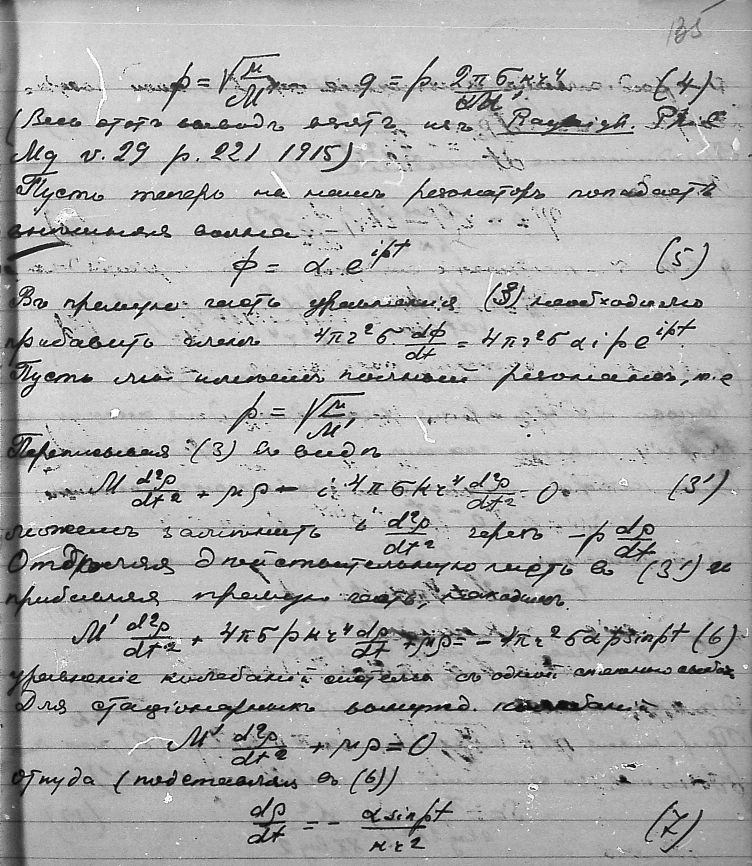 135
p = √μ/M' q = p 2πσκr⁴/M' (4)
(Весь этотъ выводъ взятъ изъ Rayleigh. Phil
Mg v. 29 p. 221 1915)
Пусть теперь на нашъ резонаторъ попадаетъ
внѣшняя волна
ϕ = α e^{ipt} (5)
Въ правую часть уравненія (3) необходимо
прибавить членъ 4πr²σ dϕ/dt = 4πr²σ α i p e^{ipt}
Пусть мы имѣемъ полный резонансъ, т.е
p = √μ/M'
Переписывая (3) въ видѣ
M' d²ρ/dt² + μρ − i 4πσκr⁴ d²ρ/dt² = 0 (3')
можемъ замѣнить i d²ρ/dt² черезъ −p dρ/dt
Отдѣляя дѣйствительную часть въ (3') и
прибавляя правую часть, находимъ
M' d²ρ/dt² + 4πσpκr⁴ dρ/dt + μρ = −4πr²σαp sin pt (6)
уравненіе колебаній системы съ одной степенью свободы
Для стаціонарныхъ вынужд. колебаній
M' d²ρ/dt² + μρ = 0,
откуда (подставляя въ (6))
dρ/dt = − α sin pt/κr² (7)